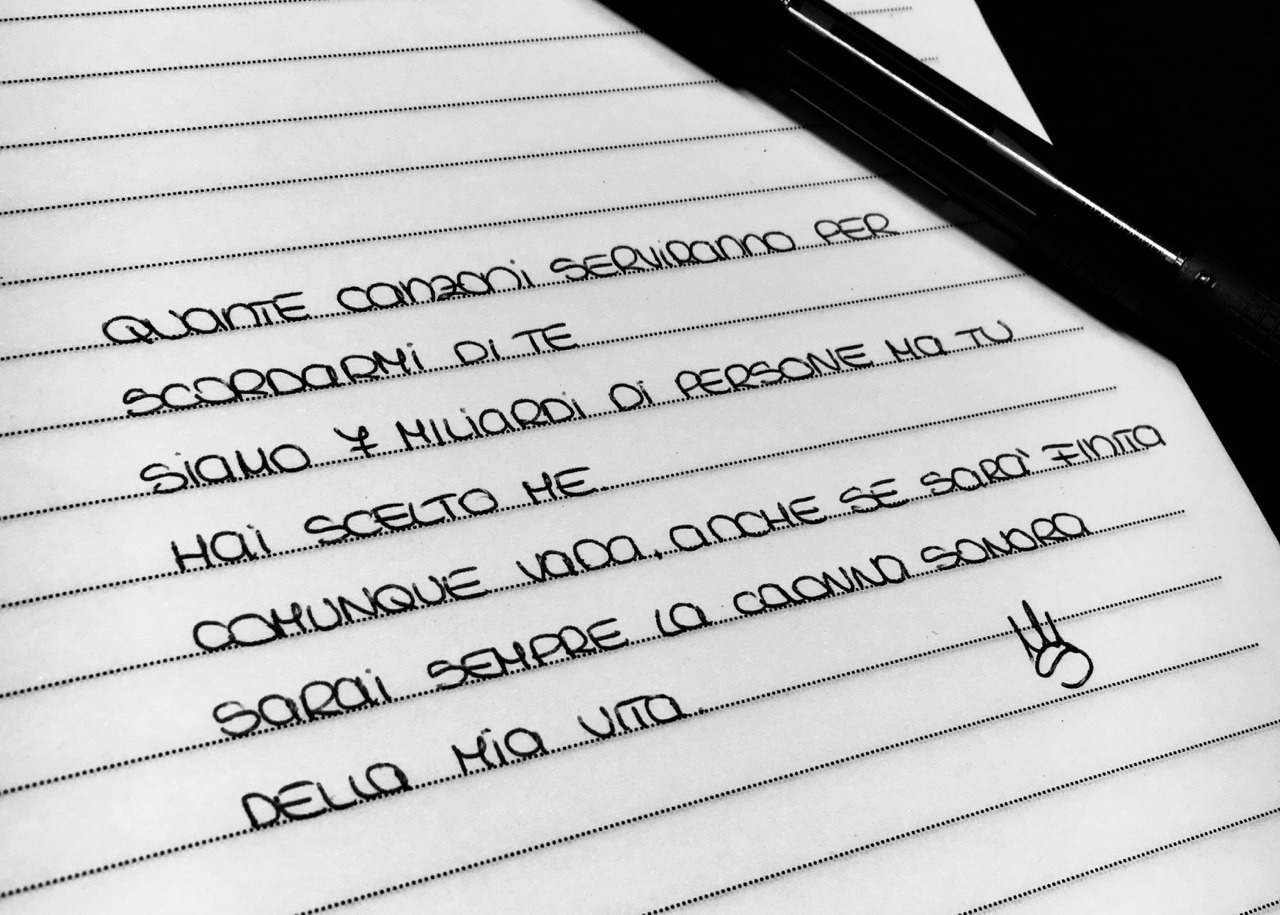 QUANTE CANZONI SERVIRANNO PER
SCORDARMI DI TE
SIAMO 7 MILIARDI DI PERSONE MA TU
HAI SCELTO ME.
COMUNQUE VADA, ANCHE SE SARÀ FINITA
SARAI SEMPRE LA COLONNA SONORA
DELLA MIA VITA.